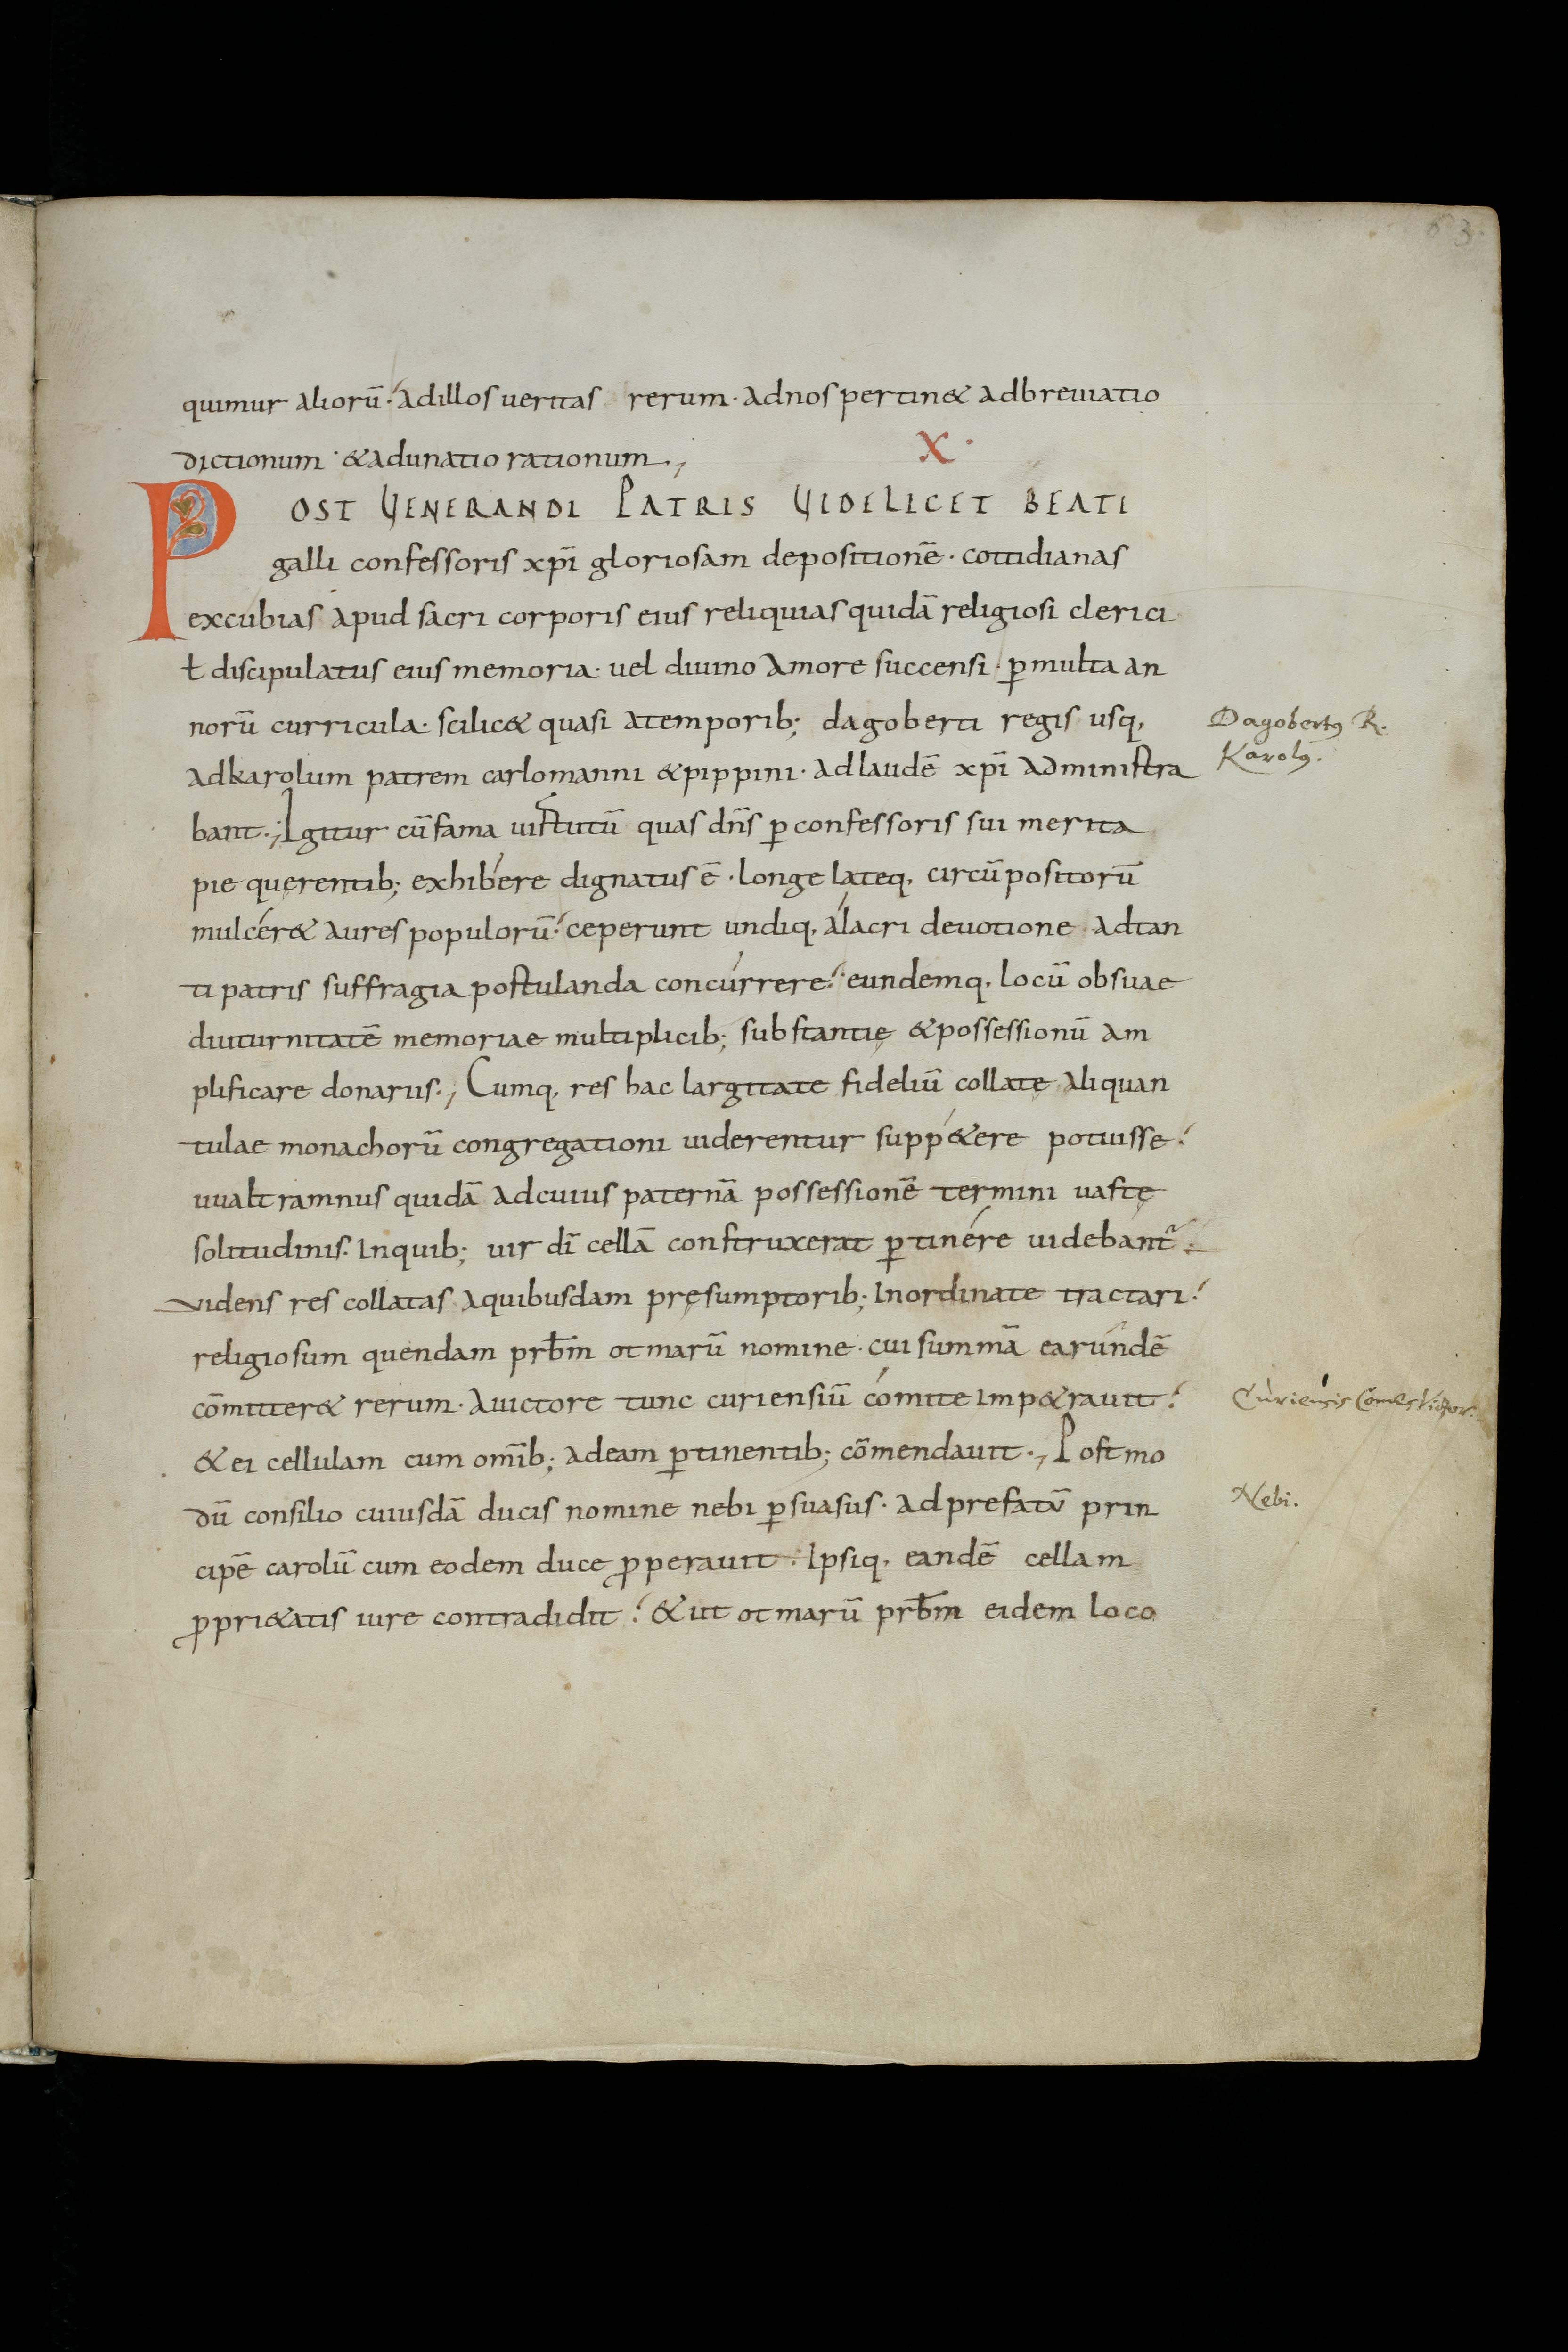 63
quimur aliorū· adillos ueritas rerum· adnos pertin& adbreuiatio
dictionum· &adunatio rationum·,
X·
POST VENERANDI PATRIS VIDELICET BEATI
galli confessoris xp̄i gloriosam depositionē· cottidianas
excubias apud sacri corporis eius reliquias quidā religiosi clerici
ƚ discipulatus eius memoria· uel diuino amore succensi· ꝑ multa an
norū curricula· scilic& quasi atemporib; dagoberti regis usq,
adkarolum patrem carlomanni &pippini· adlaudē xp̄i administra
bant·; Igitur cū fama uirtutū quas dn̄s ꝑ confessoris sui merita
pie quęrentib; exhibére dignatus ē· longe lateq, circūpositorū
mulcér& aures populorū· ceperunt undiq, álacri deuotione adtan
ti patris suffragia postulanda concúrrere· eundemq, locū obsuae
diuturnitatē memoriae multiplicib; substantię &possessionū am
plificare donariis·, Cumq, res hac largitate fideliū collatę aliquan
tulae monachorū congregationi uiderentur supp&ere potuisse·
uualtramnus quidā adcuius paternā possessionē termini uastę
solitudinis· Inquib; uir dī cellā construxerat ꝑtinére uidebant᷑·
uidens res collatas aquibusdam pręsumptorib; Inordinate tractari·
religiosum quendam prb̄m otmarū nomine· cui summā earúndē
cōmitter& rerum· auictore tunc curiensiū cómite Imp&rauit·
&ei cellulam cum om̄ib; adeam ꝑtinentib; cōmendauit·, Postmo
dū consilio cuiusdā ducis nomine nebi ꝑsuasus· adprefatū prin
cipē carolū cum eodem duce ꝓperauit· Ipsiq, eandē cellam
ꝓpri&atis iure contradidit· &ut otmarū prb̄m eidem loco
Dagobertꝰ R.
Karolꝰ.
Curiensis Comes Victor.
Nebi.